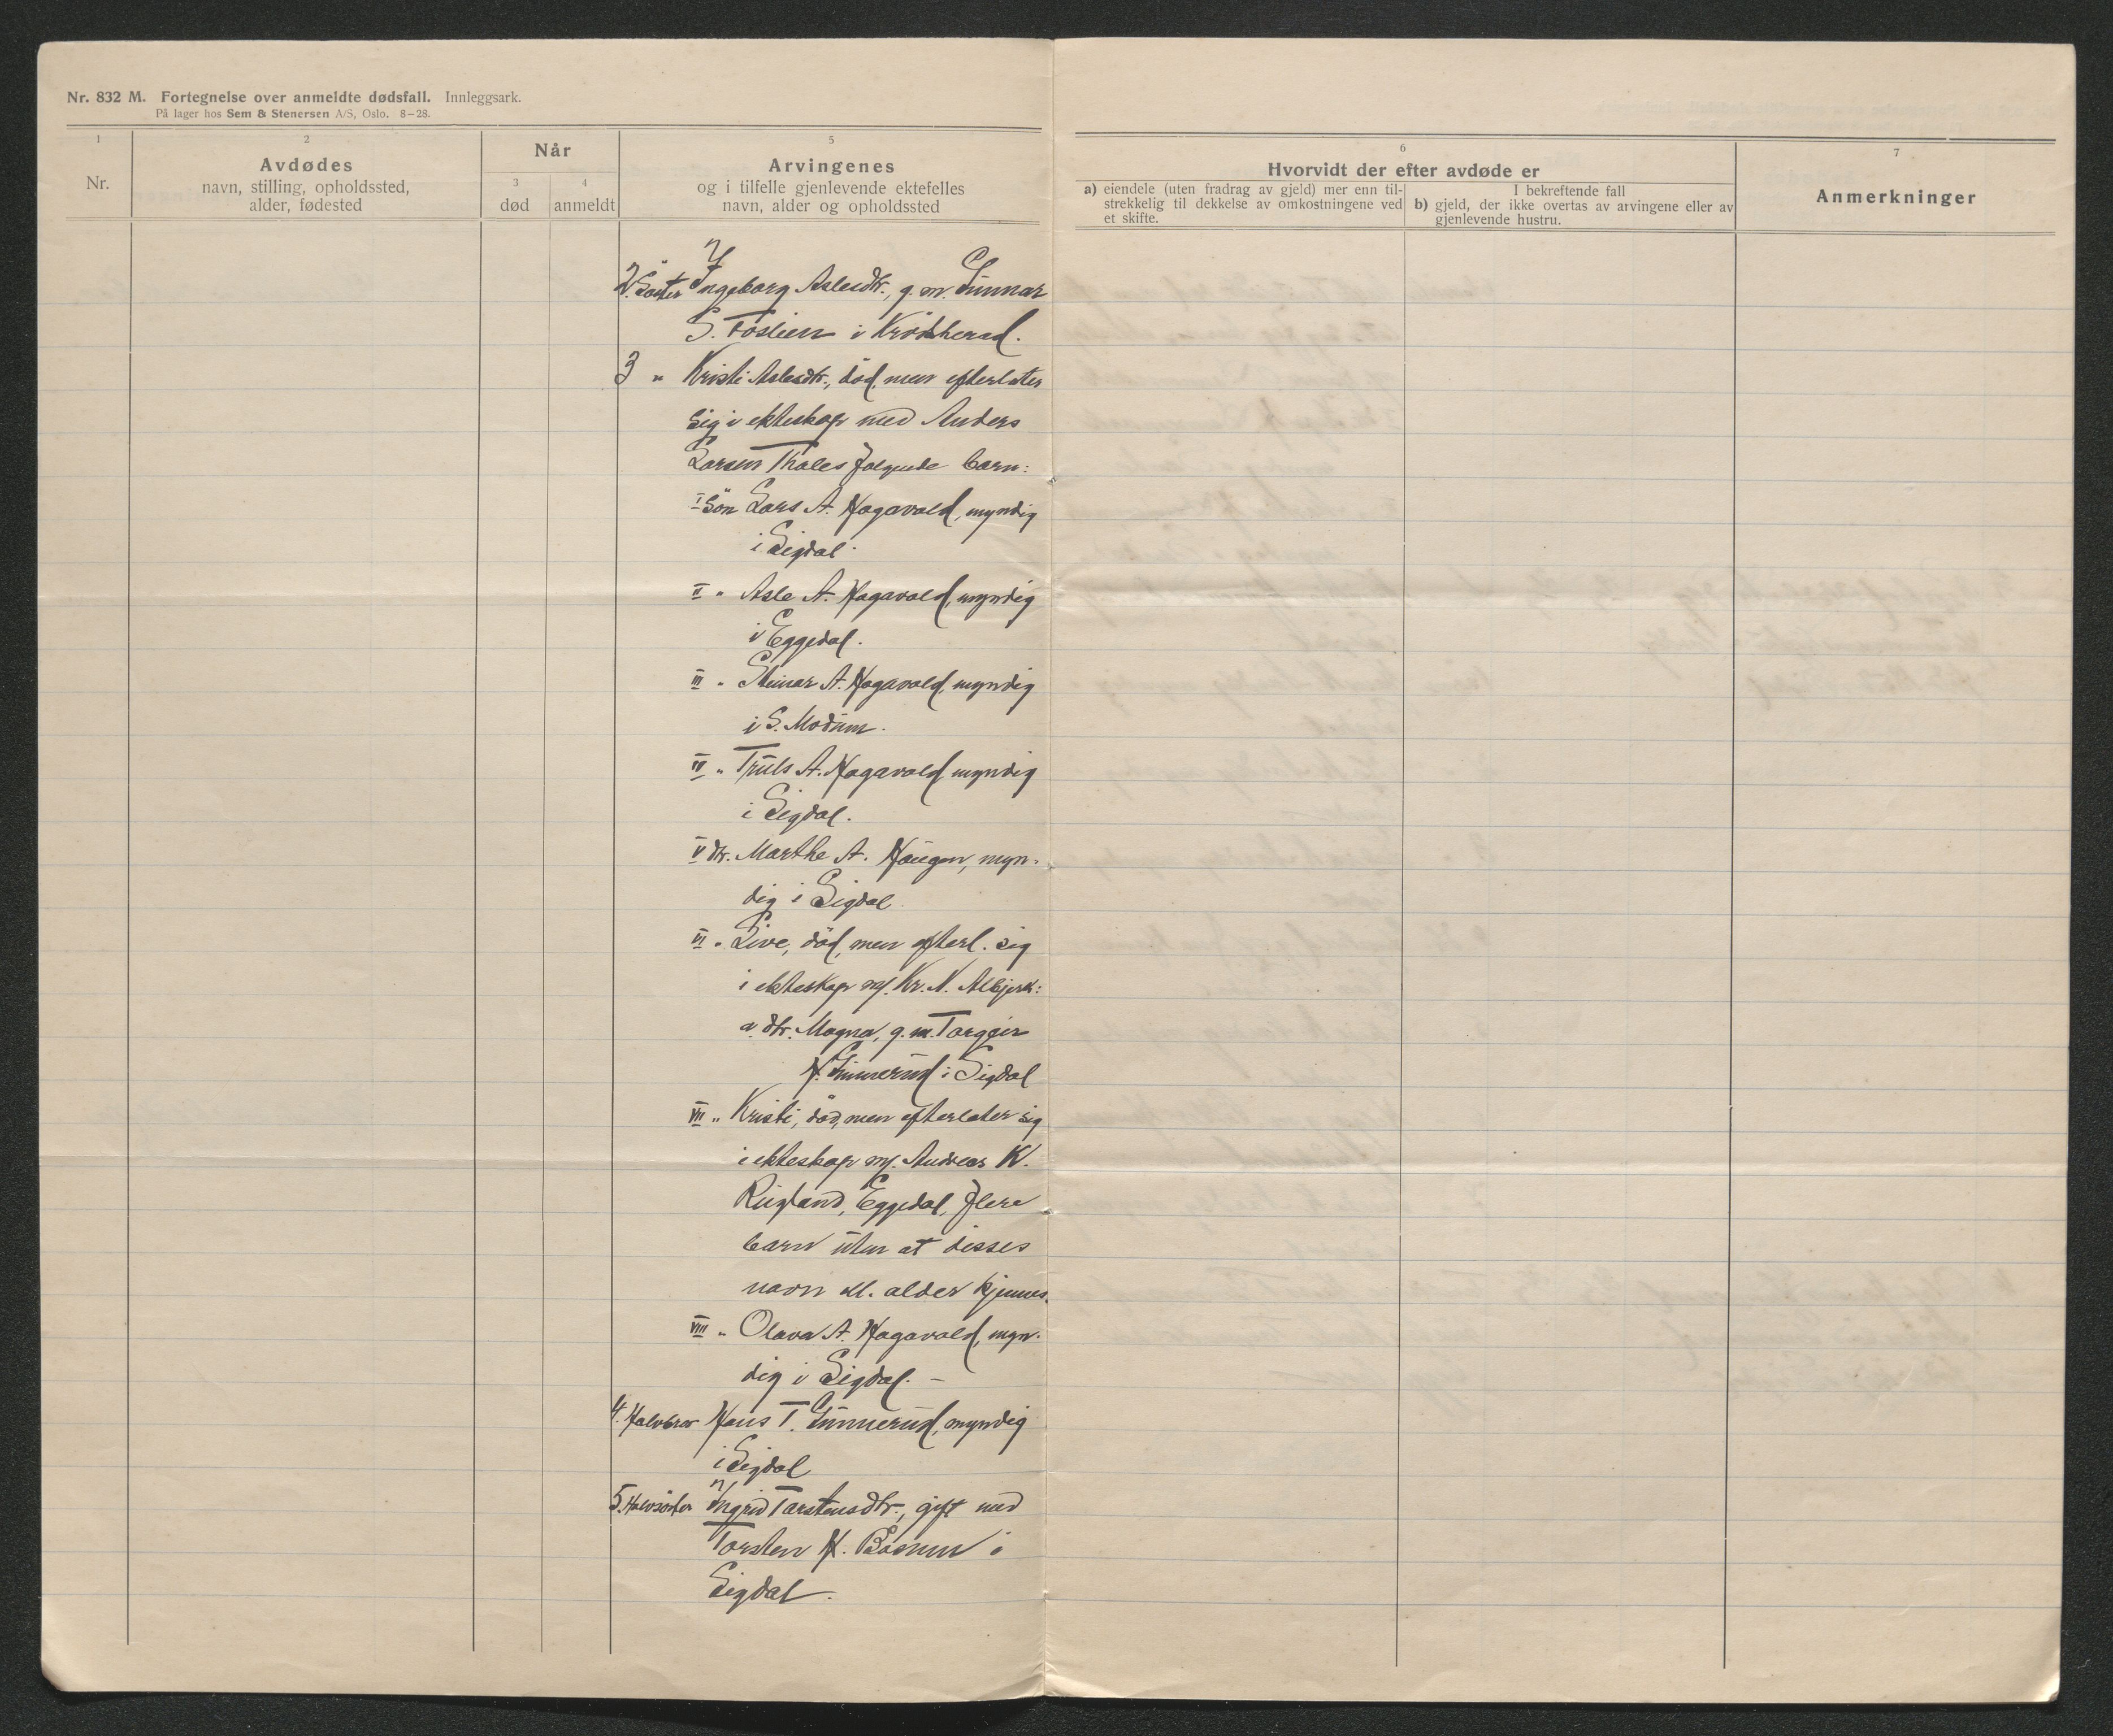 Nr. 832 M. Fortegnelse over anmeldte dødsfall. Innleggsark.
På lager hos Sem & Stenersen A/S, Oslo. 8–28.
1
Nr.
2
Avdødes
navn, stilling, opholdssted,
alder, fødested
Når
3
død
4
anmeldt
5
Arvingenes
og i tilfelle gjenlevende ektefelles
navn, alder og opholdssted
6
Hvorvidt der efter avdøde er
a) eiendele (uten fradrag av gjeld) mer enn til-
strekkelig til dekkelse av omkostningene ved
et skifte.
I bekreftende fall
b) gjeld, der ikke overtas av arvingene eller av
gjenlevende hustru.
7
Anmerkninger
2. Søster Ingeborg Aslesdtr., g. m. Gunnar
S. i Krödsherad.
3 " Kristi Aslesdtr., död, men efterlater
sig i ekteskap med Anders
Larsen Thales følgende barn:
I Sön Lars A. Hagavold, myndig
i Sigdal.
II " Asle A. Hagavold, myndig
i Eggedal.
III " Steinar A. Hagavold, myndig
i S. Modum.
IV " Truls A. Hagavold, myndig
i Sigdal.
V dtr. Marthe A. Haugen, myn-
dig i Sigdal
VI " Live, död, men efterl. sig
i ekteskap m/. Kr. N.
a. dtr. Magna, g. m. Torgeir
H. Gunnerud i Sigdal
VII " Kristi, död, men efterlater sig
i ekteskap m/. Andreas K.
Eggedal, flere
barn uten at disses
navn el. alder kjennes.
VIII " Olava A. Hagavold, myn-
dig i Sigdal. –
4. Halvbror Hans T. Gunnerud, myndig
i Sigdal
5. Halvsöster Ingrid Torstensdtr., gift med
Torsten H. i
Sigdal.